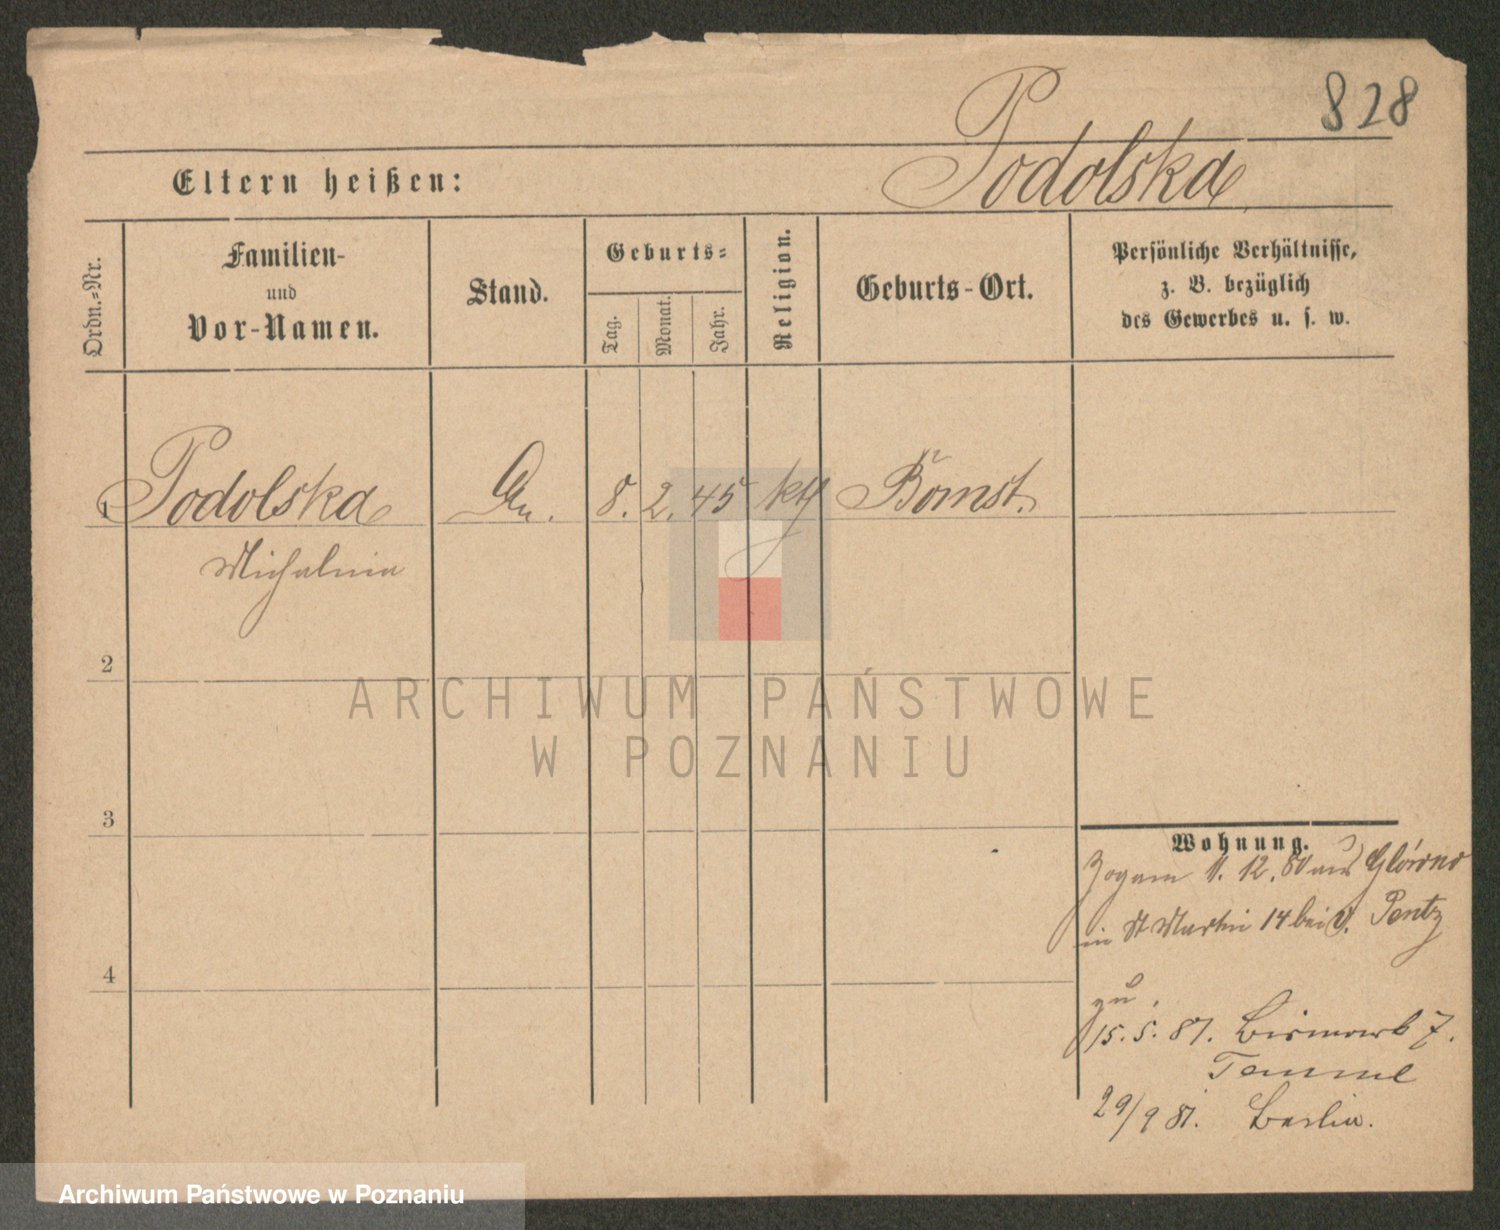 828
Podolska
Eltern heißen:
Ordn.=Nr.
Familien-
und
Vor-Namen.
Stand.
Geburts=
Tag.
Monat.
Jahr.
Religion.
Geburts-Ort.
Persönliche Verhältnisse,
z. B. bezüglich
des Gewerbes u. s. w.
1 Podolska 8. 2. 45 kth Bomst.
Michalina
2
ARCHIWUM PAŃSTWOWE
W POZNANIU
3
Wohnung.
Zogam 1. 12. 80 aus Glówno
in St Martin 14 bei v. Pentz
4
zu
15. 5. 81. Bismark 7.
29/9 81. Berlin.
Archiwum Państwowe w Poznaniu